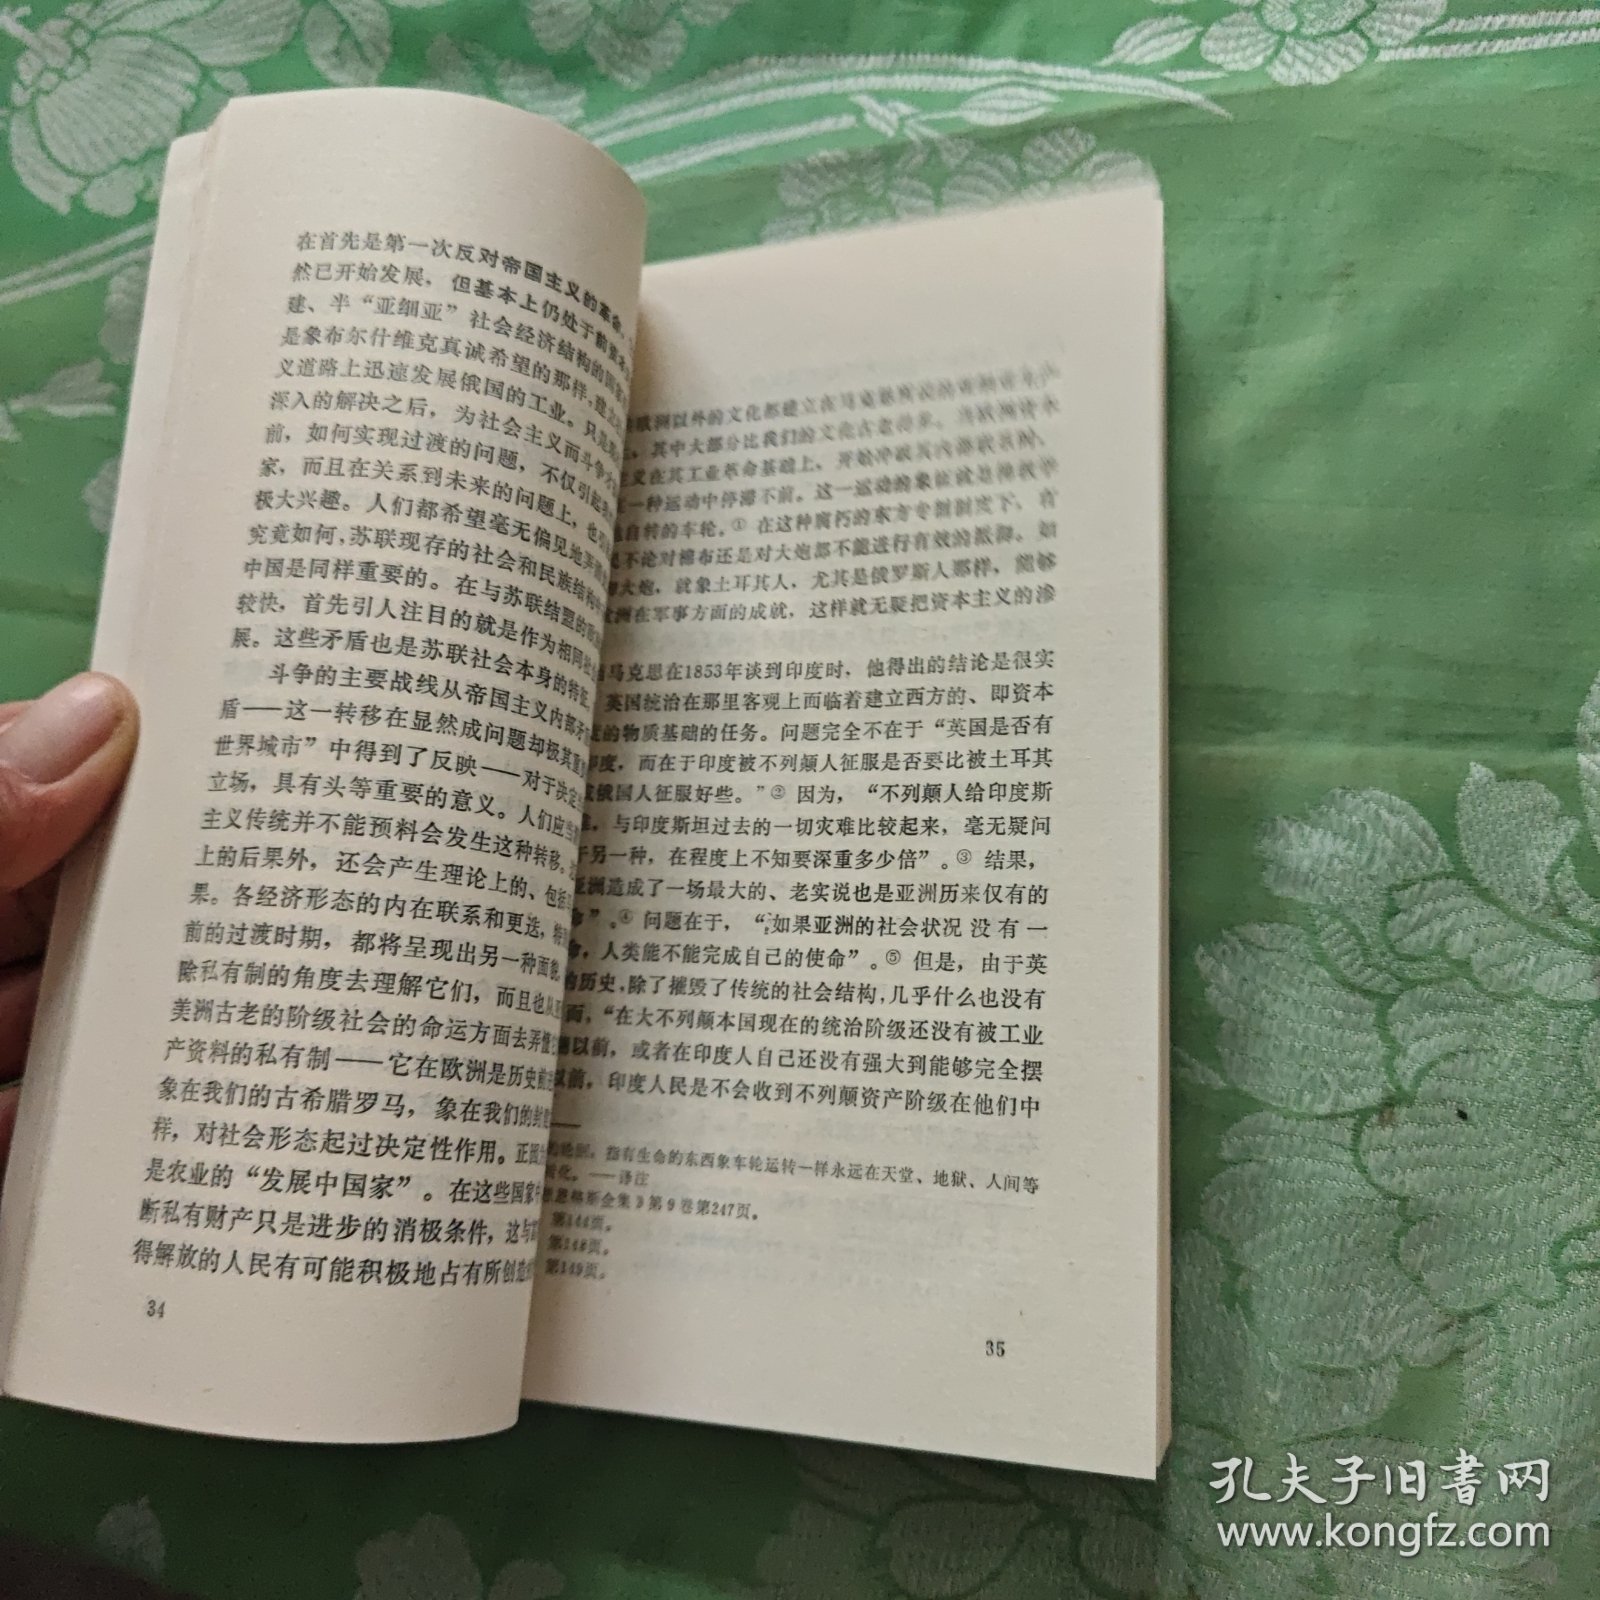 在首先是第一次反对帝国主义的革命
然已开始发展，但基本上仍处于前资本
建、半“亚细亚”社会经济结构的国家
是象布尔什维克真诚希望的那样，建立
义道路上迅速发展俄国的工业。只是
深入的解决之后，为社会主义而斗争
前，如何实现过渡的问题，不仅引起
家，而且在关系到未来的问题上，也引
极大兴趣。人们都希望毫无偏见地弄
究竟如何，苏联现存的社会和民族结构
中国是同样重要的。在与苏联结盟的
较快，首先引人注目的就是作为相同社
展。这些矛盾也是苏联社会本身的特征。
斗争的主要战线从帝国主义内部矛
盾——这一转移在显然成问题却极其重
世界城市”中得到了反映——对于决定
立场，具有头等重要的意义。人们应当
主义传统并不能预料会发生这种转移。
上的后果外，还会产生理论上的、包括
果。各经济形态的内在联系和更迭，特
前的过渡时期，都将呈现出另一种面貌
除私有制的角度去理解它们，而且也从
美洲古老的阶级社会的命运方面去弄懂
产资料的私有制——它在欧洲是历史前
象在我们的古希腊罗马，象在我们的封建
样，对社会形态起过决定性作用。正因
是农业的“发展中国家”。在这些国家
断私有财产只是进步的消极条件，这与
得解放的人民有可能积极地占有所创造
34
欧洲以外的文化都建立在马克思所说的
，其中大部分比我们的文化古老得多。当欧洲资本
主义在其工业革命基础上，开始冲破其内部联系时，
在一种运动中停滞不前。这一运动的象征就是佛教学
自转的车轮。① 在这种腐朽的东方专制制度下，
不论对棉布还是对大炮都不能进行有效的抵御。如
大炮，就象土耳其人，尤其是俄罗斯人那样，能够
洲在军事方面的成就，这样就无疑把资本主义的渗
马克思在1853年谈到印度时，他得出的结论是很实
英国统治在那里客观上面临着建立西方的、即资本
的物质基础的任务。问题完全不在于“英国是否有
印度，而在于印度被不列颠人征服是否要比被土耳其
俄国人征服好些。”② 因为，“不列颠人给印度斯
，与印度斯坦过去的一切灾难比较起来，毫无疑问
于另一种，在程度上不知要深重多少倍”。③ 结果，
亚洲造成了一场最大的、老实说也是亚洲历来仅有的
”。④ 问题在于，“如果亚洲的社会状况没有一
，人类能不能完成自己的使命”。⑤ 但是，由于英
的历史，除了摧毁了传统的社会结构，几乎什么也没有
而，“在大不列颠本国现在的统治阶级还没有被工业
以前，或者在印度人自己还没有强大到能够完全摆
以前，印度人民是不会收到不列颠资产阶级在他们中
指有生命的东西象车轮运转一样永远在天堂、地狱、人间等
转化。——译注
恩格斯全集》第9卷第247页。
第144页。
第148页。
第149页。
35
孔夫子旧书网
www.kongfz.com